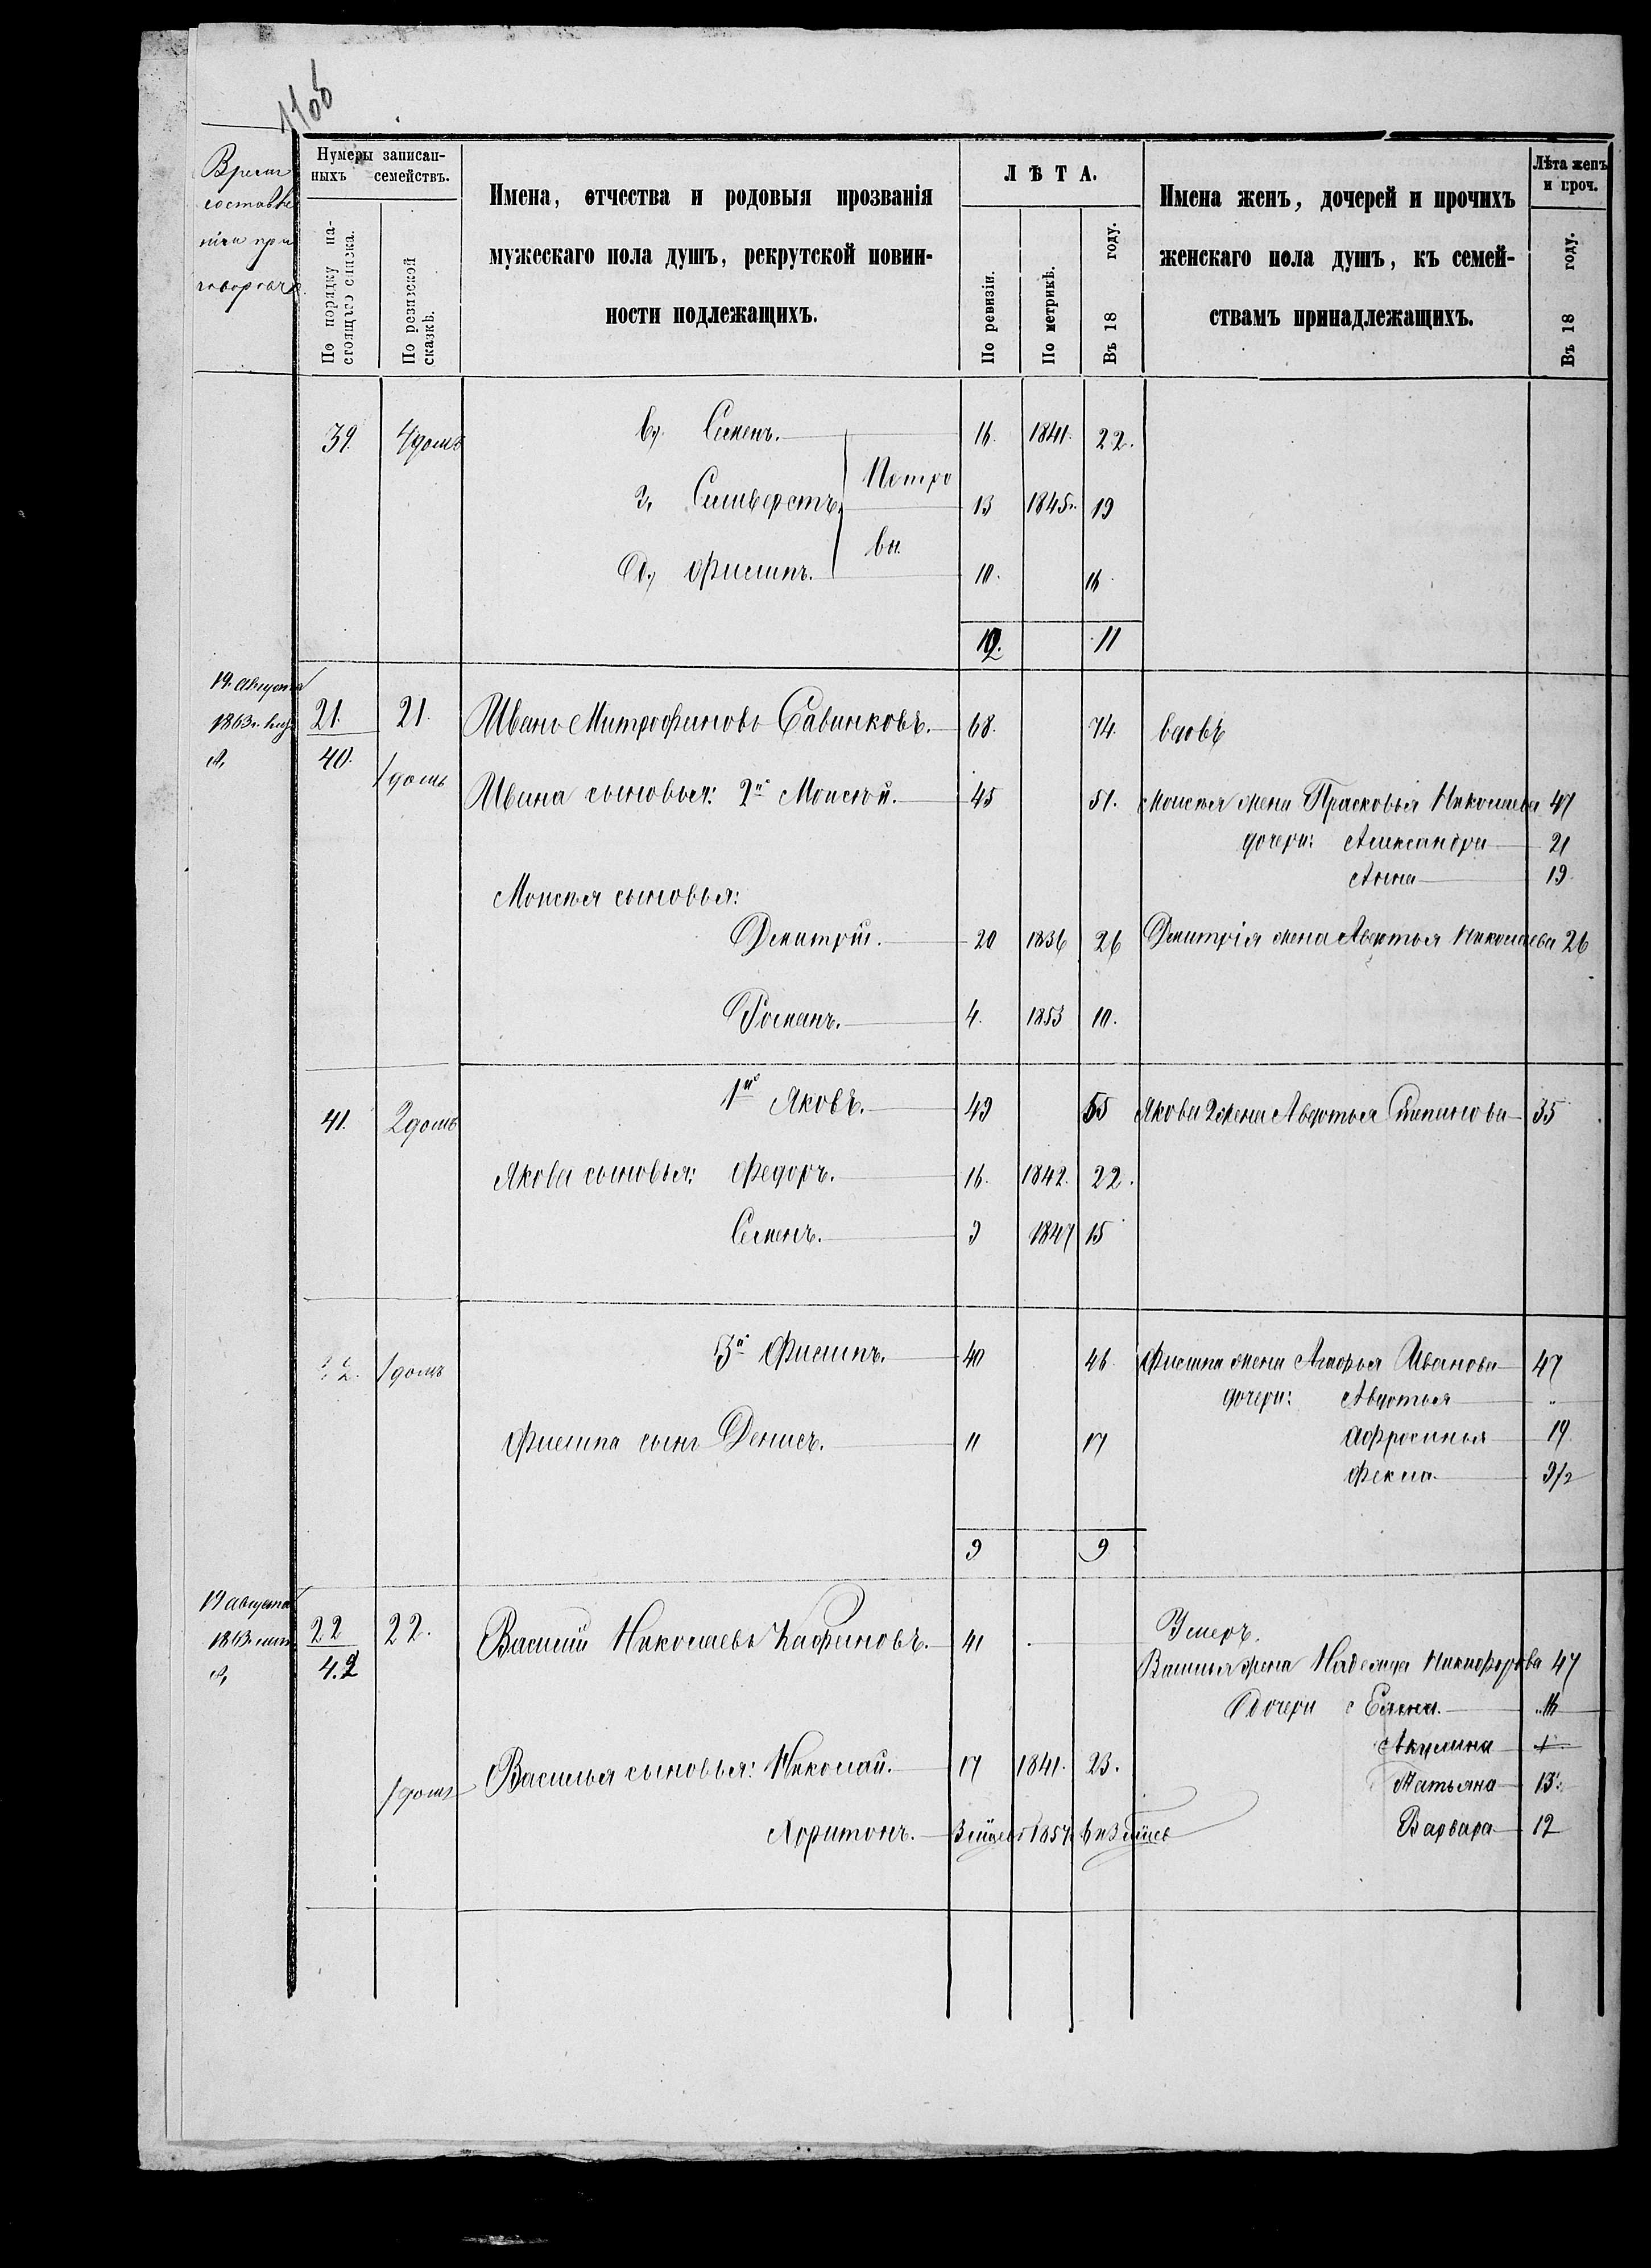 11об
Время
составле
нiя при
говоровъ.
Нумеры записан-
ныхъ семействъ.
По порядку на-
стоящаго списка.
По ревизской
сказкѣ.
Имена, отчества и родовыя прозванія
мужескаго пола душъ, рекрутской повин-
ности подлежащихъ.
ЛѢТА.
По ревизіи.
По метрикѣ.
Въ 18 году.
Имена женъ, дочерей и прочихъ
женскаго пола душъ, къ семей-
ствамъ принадлежащихъ.
Лѣта женъ
и проч.
Въ 18 году.
39. 4 домъ в, Семенъ. 16. 1841. 22.
Петро
г, Сильверстъ. 13 1845г. 19
вы.
д, Филипъ. 10. 16
12. 11
19 августа
1863г.
21. 21. Иванъ Митрофановъ Савинковъ. 68. 74. вдовъ
40. 1 домъ
Ивана сыновья: 2й Моисей. 45 51. Моисея жена Прасковья Николаева 47
дочери: Александра 21
Анна 19
Моисея сыновья:
Дмитрій. 20 1836 26 Дмитрія жена Авдотья Николаева 26
Романъ. 4. 1853 10.
41. 2 домъ 1й Яковъ. 49 55 Якова 2 жена Авдотья Степанова 35
Якова сыновья: Федоръ. 16. 1842. 22.
Семенъ. 9 1847 15
1 домъ 3й Филипъ. 40 46. Филипа жена Агафья Иванова 47
дочери: Авдотья "
Филипа сынъ Денисъ. 11 17 Афросинья 19
Фекла 9/2
9 9
19 августа
1863г.
22 22. Василій Николаевъ 41 Умеръ.
42
Василья жена Надежда Никифорова 47
Дочери Елена. 16
Акулина
1 домъ Василья сыновья: Николай. 17 1841. 23.
Татьяна 13
Харитонъ. 1857. Варвара 12